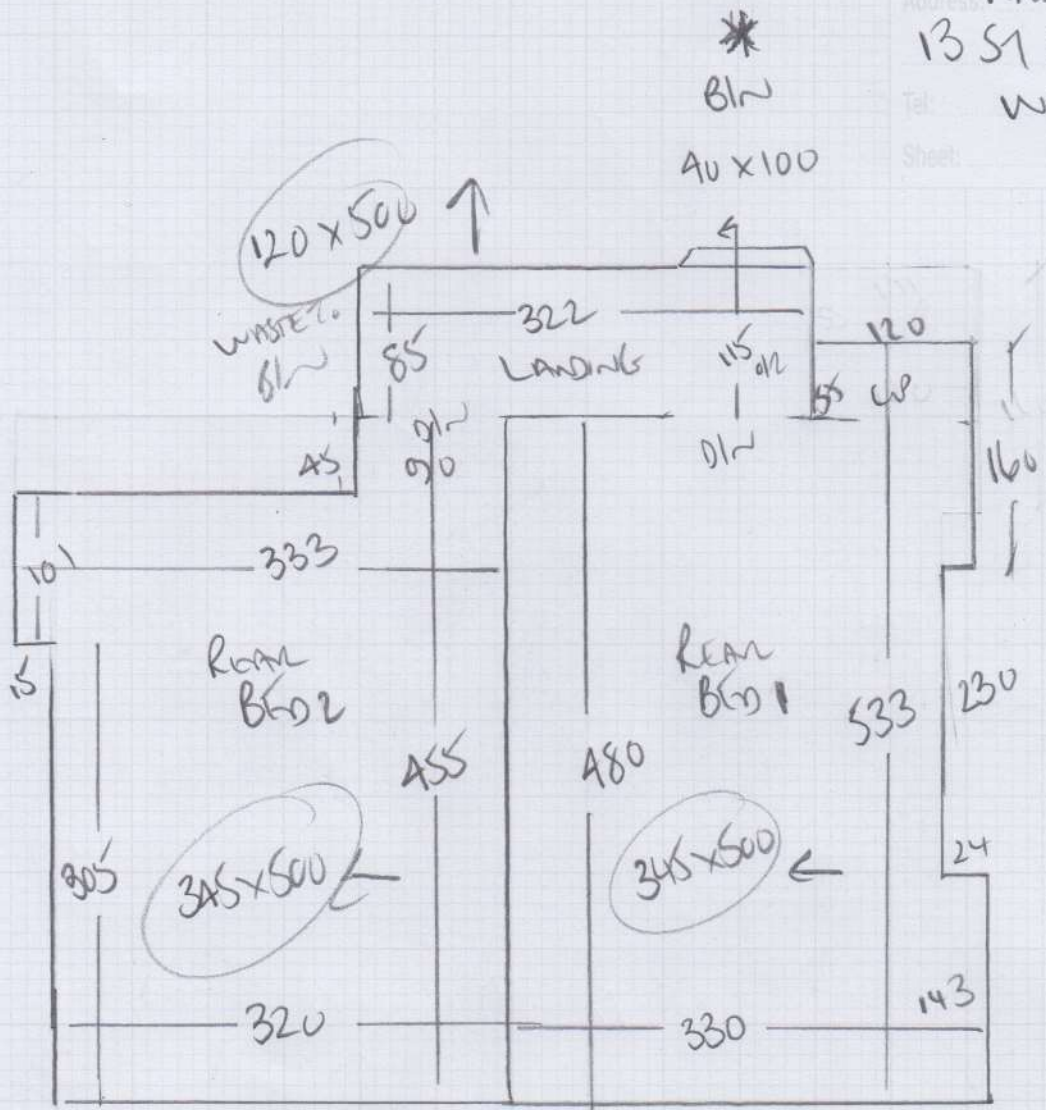 Address:
13 ST
Tel:
Sheet:
*
B/N
40 x 100
120 x 500
WASTE
B/N
322
85
LANDING
115
120
55
D/N
90
D/N
45
160
101
333
15
REAR
BED 2
REAR
BED 1
230
533
455
480
24
305
345 x 500
345 x 500
143
320
330